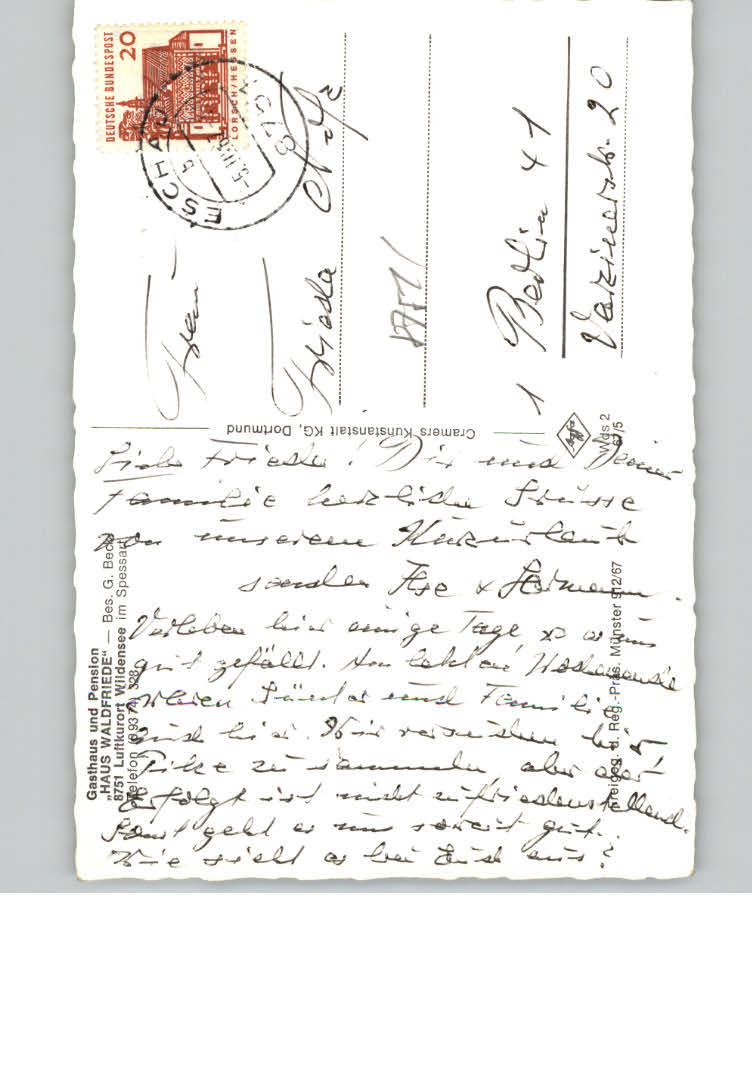 DEUTSCHE BUNDESPOST
20
LORSCH/HESSEN
ESCHAU
8751
Frau
Frieda
8751
1 Berlin 41
Varzinerstr. 20
Cramers Kunstanstalt KG, Dortmund
Agfa
Wds 2
67/5
Gasthaus und Pension
„HAUS WALDFRIEDE“ — Bes. G. Beck
8751 Luftkurort Wildensee im Spessart
Telefon (0 93 74) 328
Freigeg. d. Reg.-Präs. Münster 912/67
Liebe Frieda! Dir und Deiner
Familie herzliche Grüsse
von unserem Kurzurlaub
senden Ilse & Hermann.
Verleben hier einige Tage, wo es uns
gut gefällt. Am letzten Wochenende
waren Günter und Familie
auch hier. Wir versuchen hier
Pilze zu sammeln, aber der
Erfolg ist nicht zufriedenstellend.
Sonst geht es uns soweit gut.
Wie sieht es bei Euch aus?